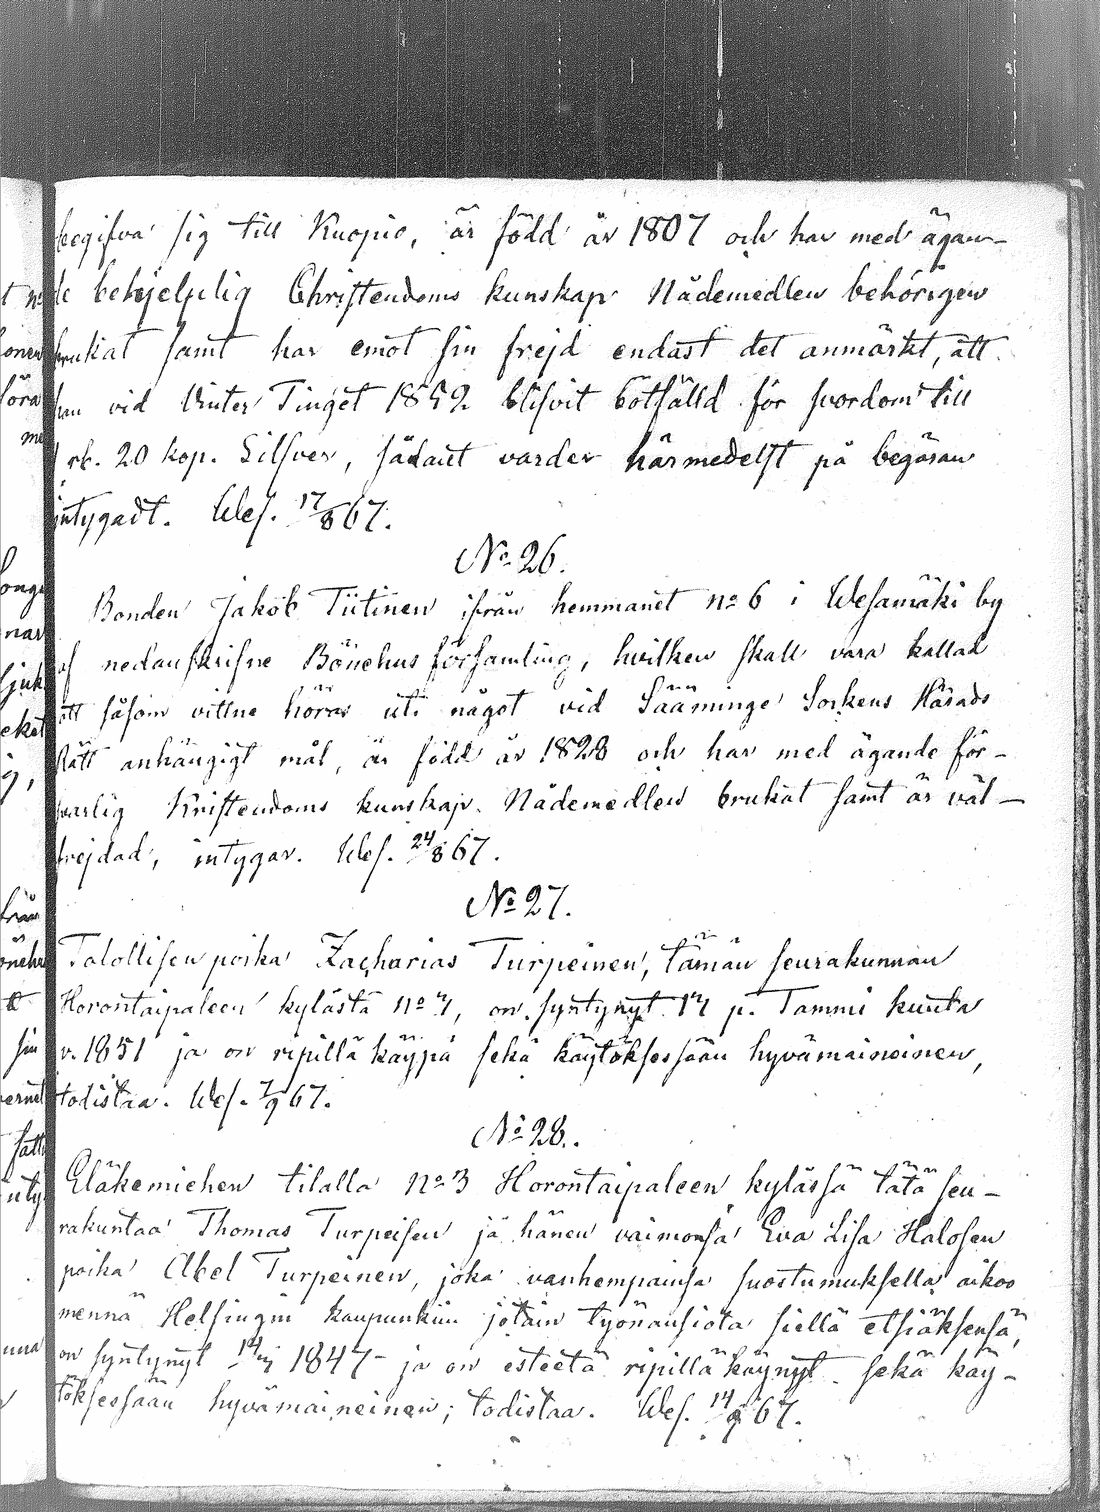 begifva sig till Kuopio, är född år 1807 och har med ägan-
de behjelplig Christendoms kunskap Nådemedlen behörigen
brukat samt har emot sin frejd endast det anmärkt, att
han vid Vinter Tinget 1852 blifvit bötfälld för svordom till
rb. 20 kop. Silfver, sådant varder härmedelst på begäran
intygadt. Wes. 17/8 67.
No 26.
Bonden Jakob Tiitinen ifrån hemmanet no 6 i Wesamäki by
af nedanskrifne Bönehus församling, hvilken skall vara kallad
att såsom vittne höras uti något vid Sääminge Sockens Härads
Rätt anhängigt mål, är född år 1828 och har med ägande för-
svarlig Kristendoms kunskap Nådemedlen brukat samt är väl-
frejdad, intygar. Wes. 24/8 67.
No 27.
Talollisen poika Zacharias Turpeinen, tämän seurakunnan
Horontaipaleen kylästä no 7, on syntynyt 17 p. Tammi kuuta
v. 1851 ja on ripillä käypä sekä käytöksessään hyvämaineinen,
todistaa. Wes. 7/9 67.
No 28.
Eläkemiehen tilalla no 3 Horontaipaleen kylässä tätä seu-
rakuntaa Thomas Turpeisen ja hänen vaimonsa Eva Lisa Halosen
poika Abel Turpeinen, joka vanhempainsa suostumuksella aikoo
mennä Helsingin kaupunkiin jotain työnansiota siellä etsiäksensä,
on syntynyt 1847 ja on esteetä ripillä käynyt sekä käy-
töksessään hyvämaineinen; todistaa. Wes. 14/9 67.